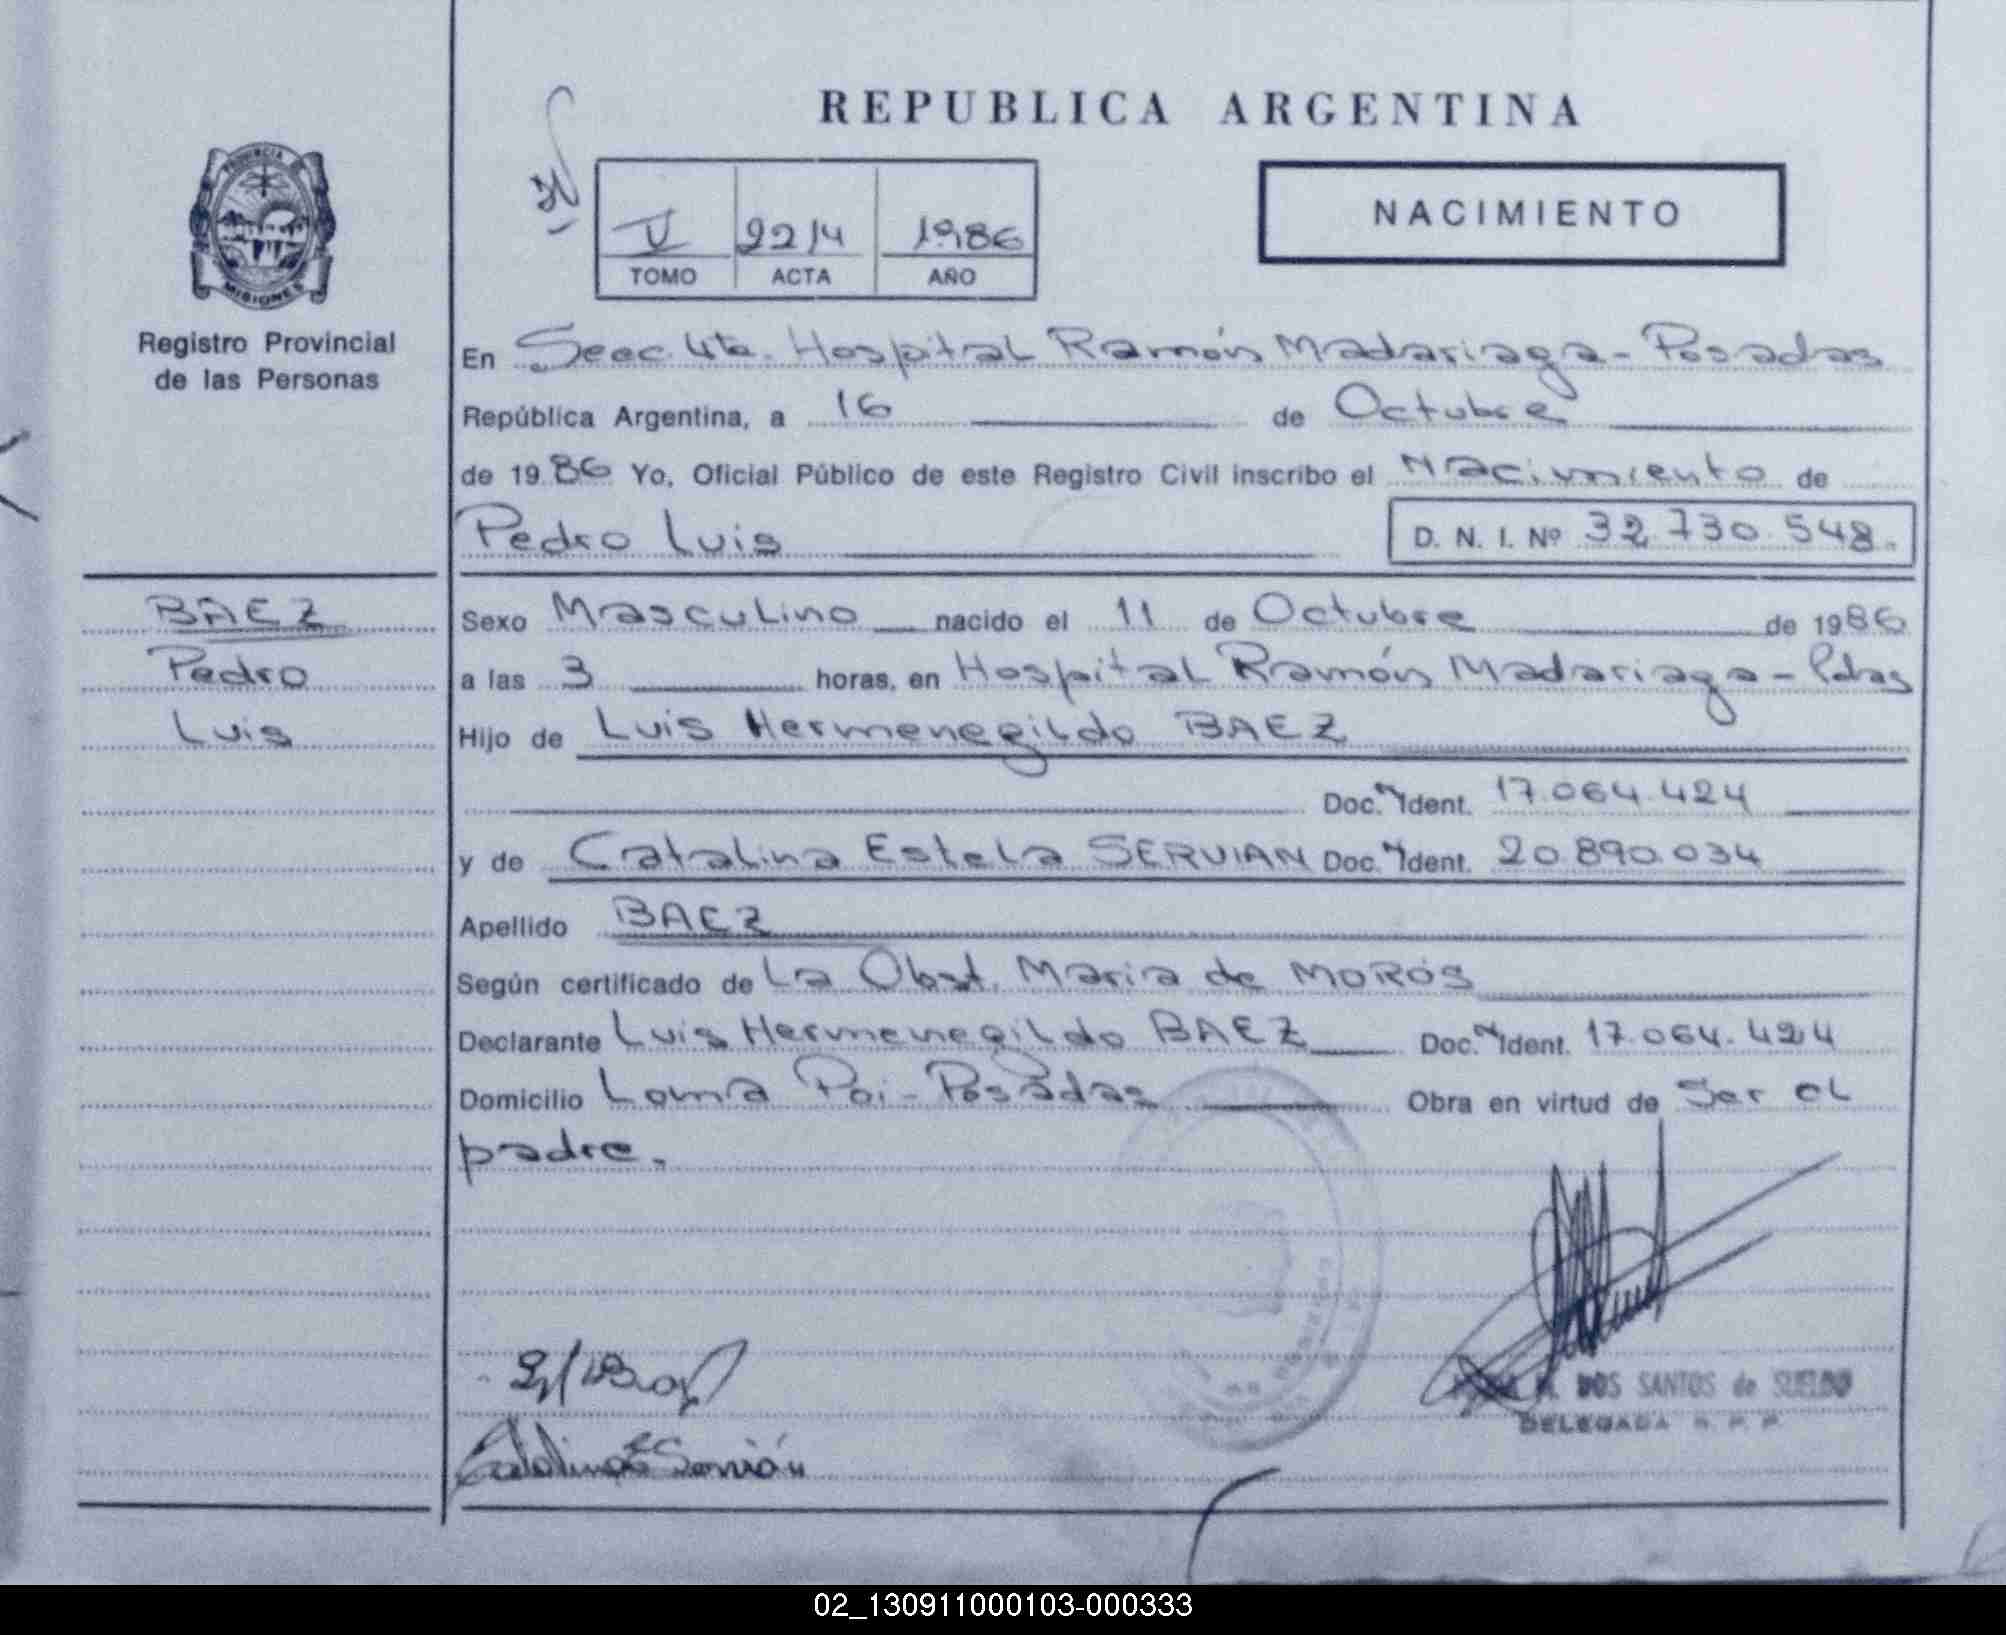 REPUBLICA ARGENTINA
PROVINCIA
MISIONES
Registro Provincial
de las Personas
V 2214 1986
TOMO ACTA AÑO
NACIMIENTO
En Secc. 4ta. Hospital Ramón Madariaga - Posadas
República Argentina, a 16 de Octubre
de 1986 Yo, Oficial Público de este Registro Civil inscribo el Nacimiento de
Pedro Luis D. N. I. Nº 32.730.548.
BAEZ
Pedro
Luis
Sexo Masculino nacido el 11 de Octubre de 1986
a las 3 horas, en Hospital Ramón Madariaga - Pdas
Hijo de Luis Hermenegildo BAEZ
Doc. N Ident. 17.064.424
y de Catalina Estela SERVIAN Doc. N Ident. 20.890.034
Apellido BAEZ
Según certificado de La Obst. Maria de MOROS
Declarante Luis Hermenegildo BAEZ Doc. N Ident. 17.064.424
Domicilio Loma Poi - Posadas Obra en virtud de Ser el
padre.
DOS SANTOS de SUELDO
DELEGADA R. P. P.
Catalina E Servián
02_130911000103-000333